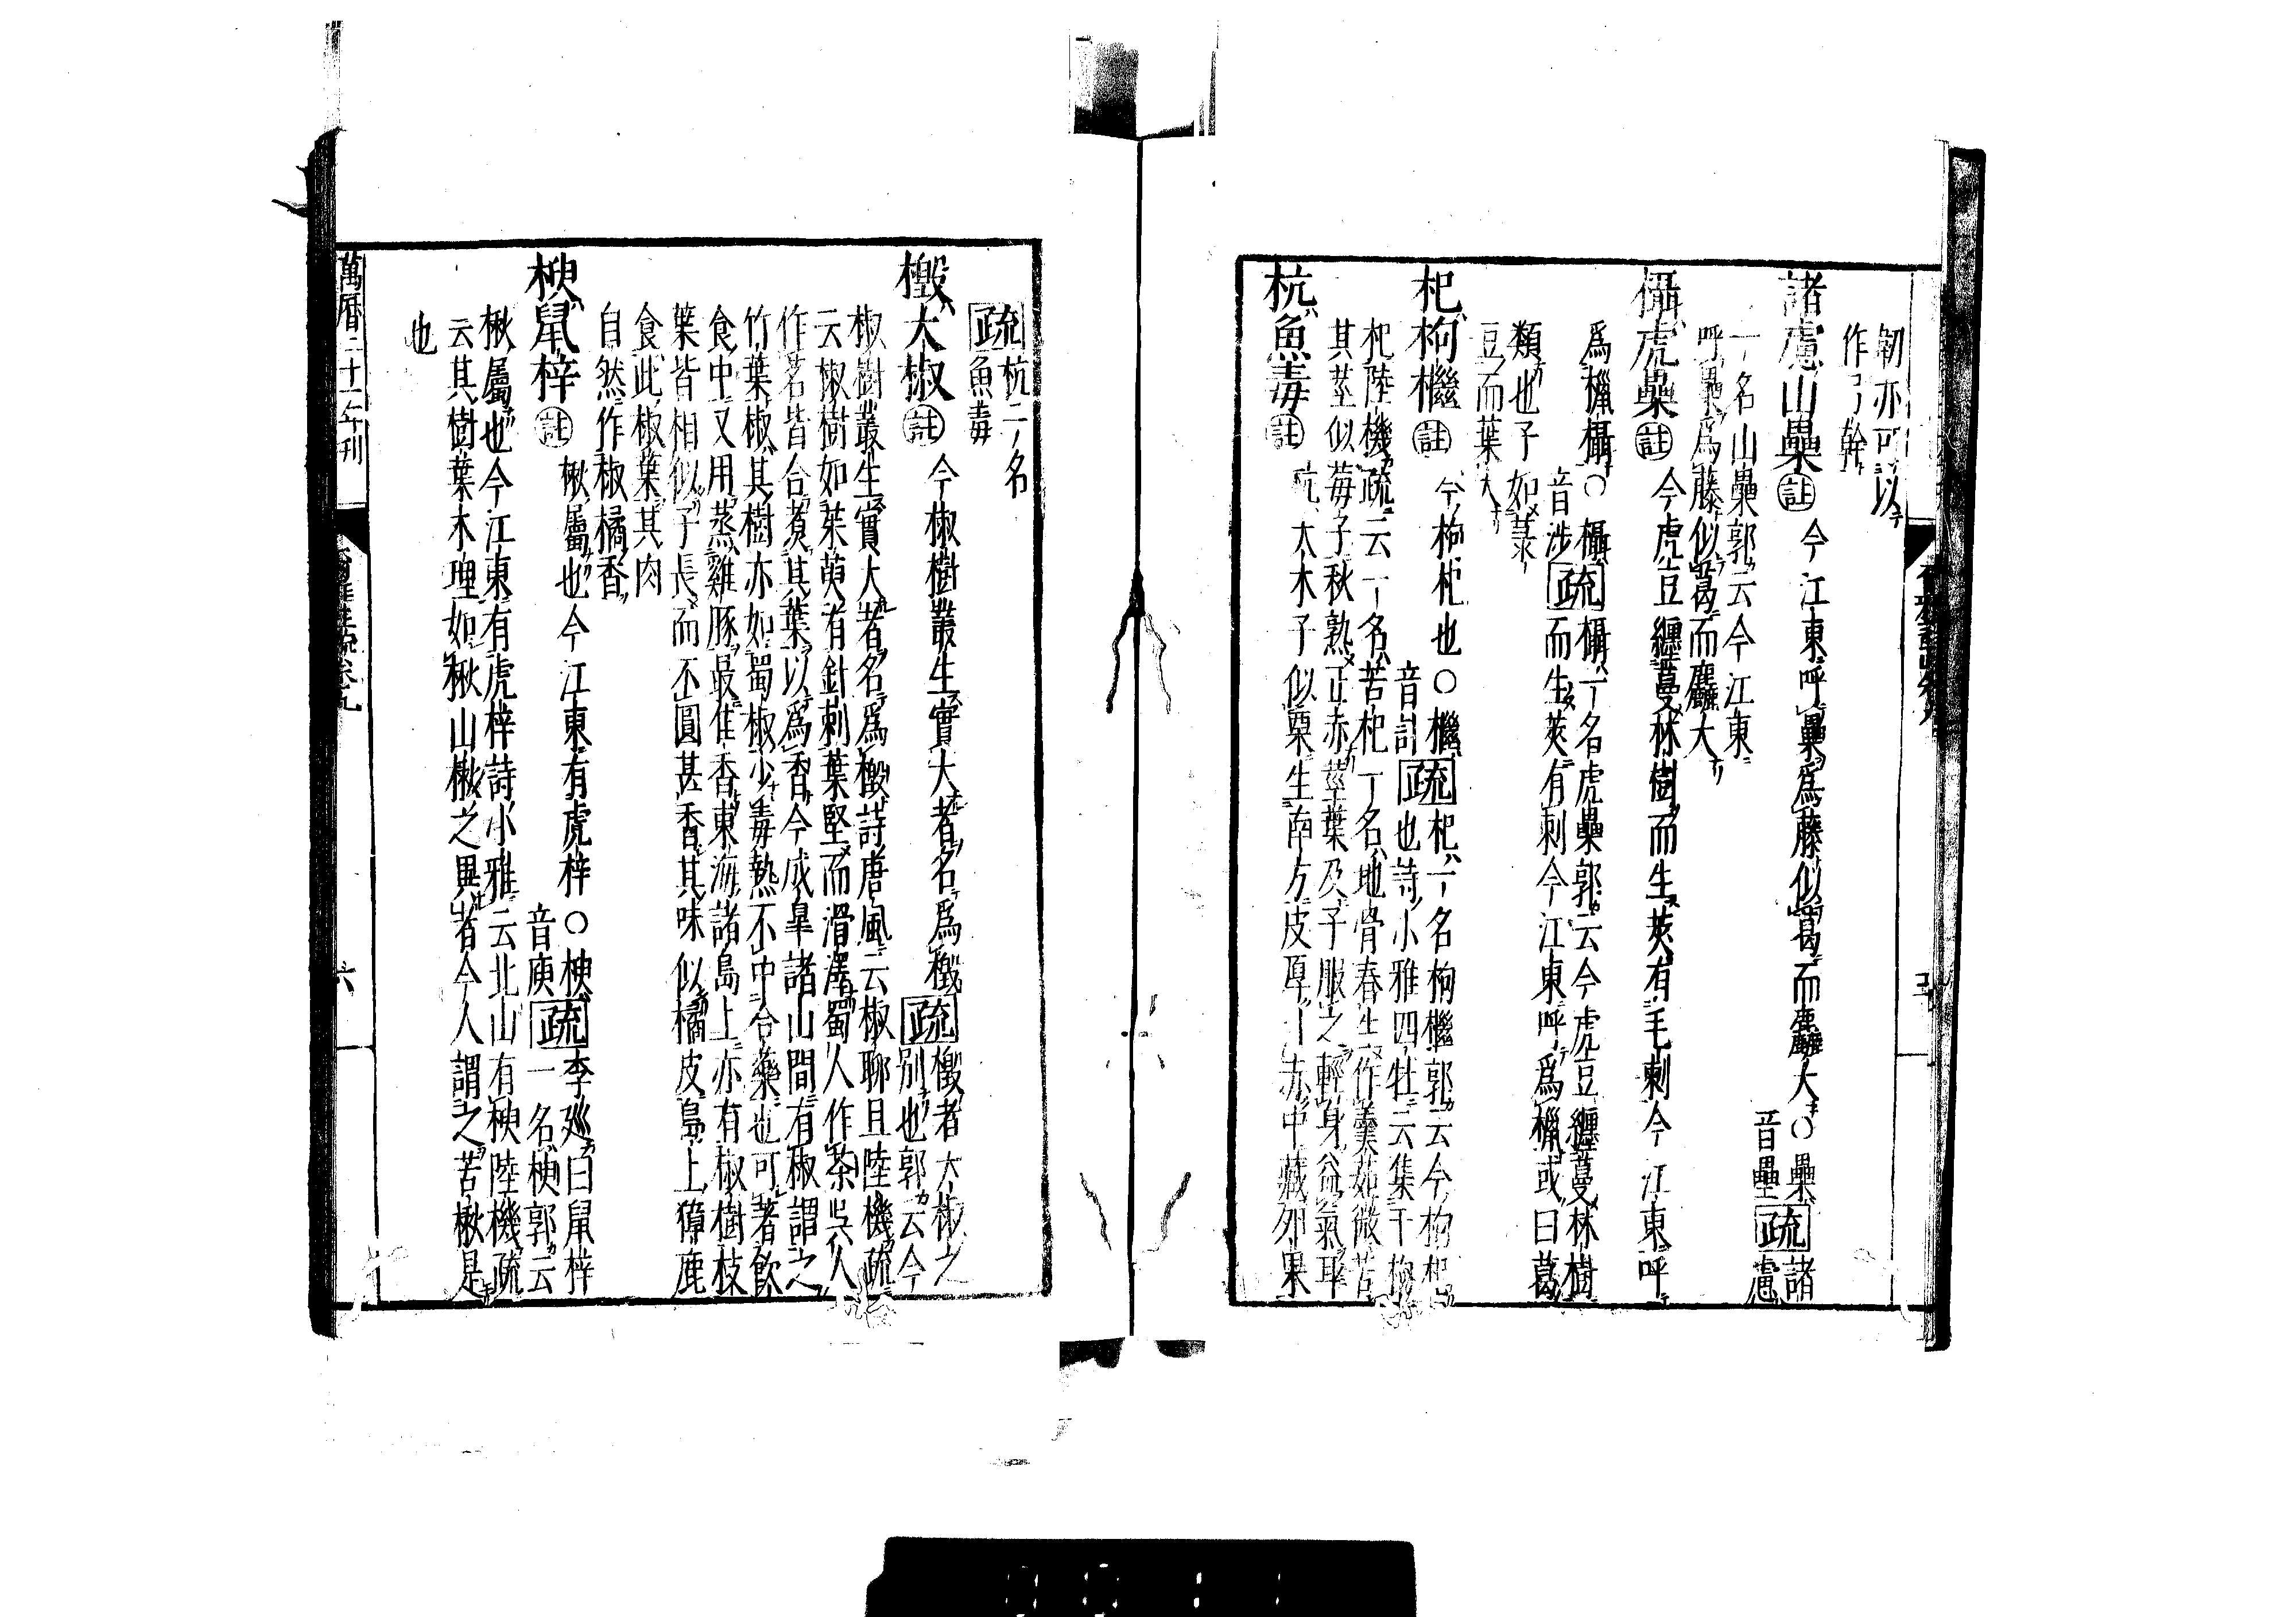 韌亦可以
作弓幹
諸慮山櫐註今江東呼櫐為藤似葛而麤大○櫐音壘疏諸慮
一名山櫐郭云今江東
呼櫐為藤似葛而麤大
欇虎櫐註今虎豆纏蔓林樹而生莢有毛刺今江東呼
為㯿欇○欇音涉疏欇一名虎櫐郭云今虎豆纏蔓林樹
而生莢有刺今江東呼為㯿或曰葛
類也子如菉
豆而葉大
杞枸檵註今枸杞也○檵音計疏杞一名枸檵郭云今枸杞
也詩小雅四牡云集于枸
杞陸機疏云一名苦杞一名地骨春生作羹茹微苦
其莖似莓子秋熟正赤莖葉及子服之輕身益氣耳
杬魚毒註杬大木子似栗生南方皮厚汁赤中藏卵果
疏杬一名
魚毒
檓大椒註今椒樹叢生實大者名為檓疏檓者大椒之
別也郭云今
椒樹叢生實大者名為檓詩唐風云椒聊且陸機疏
云椒樹如茱萸有針刺葉堅而滑澤蜀人作茶吳人
作茗皆合煑其葉以為香今成皐諸山間有椒謂之
竹葉椒其樹亦如蜀椒少毒熱不中合藥也可著飲
食中又用蒸雞豚最佳香東海諸島上亦有椒樹枝
葉皆相似子長而不圓甚香其味似橘皮島上獐鹿
食此椒葉其肉
自然作椒橘香
楰鼠梓註楸屬也今江東有虎梓○楰音庾疏李廵曰鼠梓
一名楰郭云
楸屬也今江東有虎梓詩小雅云北山有楰陸機疏
云其樹葉木理如楸山楸之異者今人謂之苦楸是
也
萬曆二十一年刊
爾雅註疏卷九
六